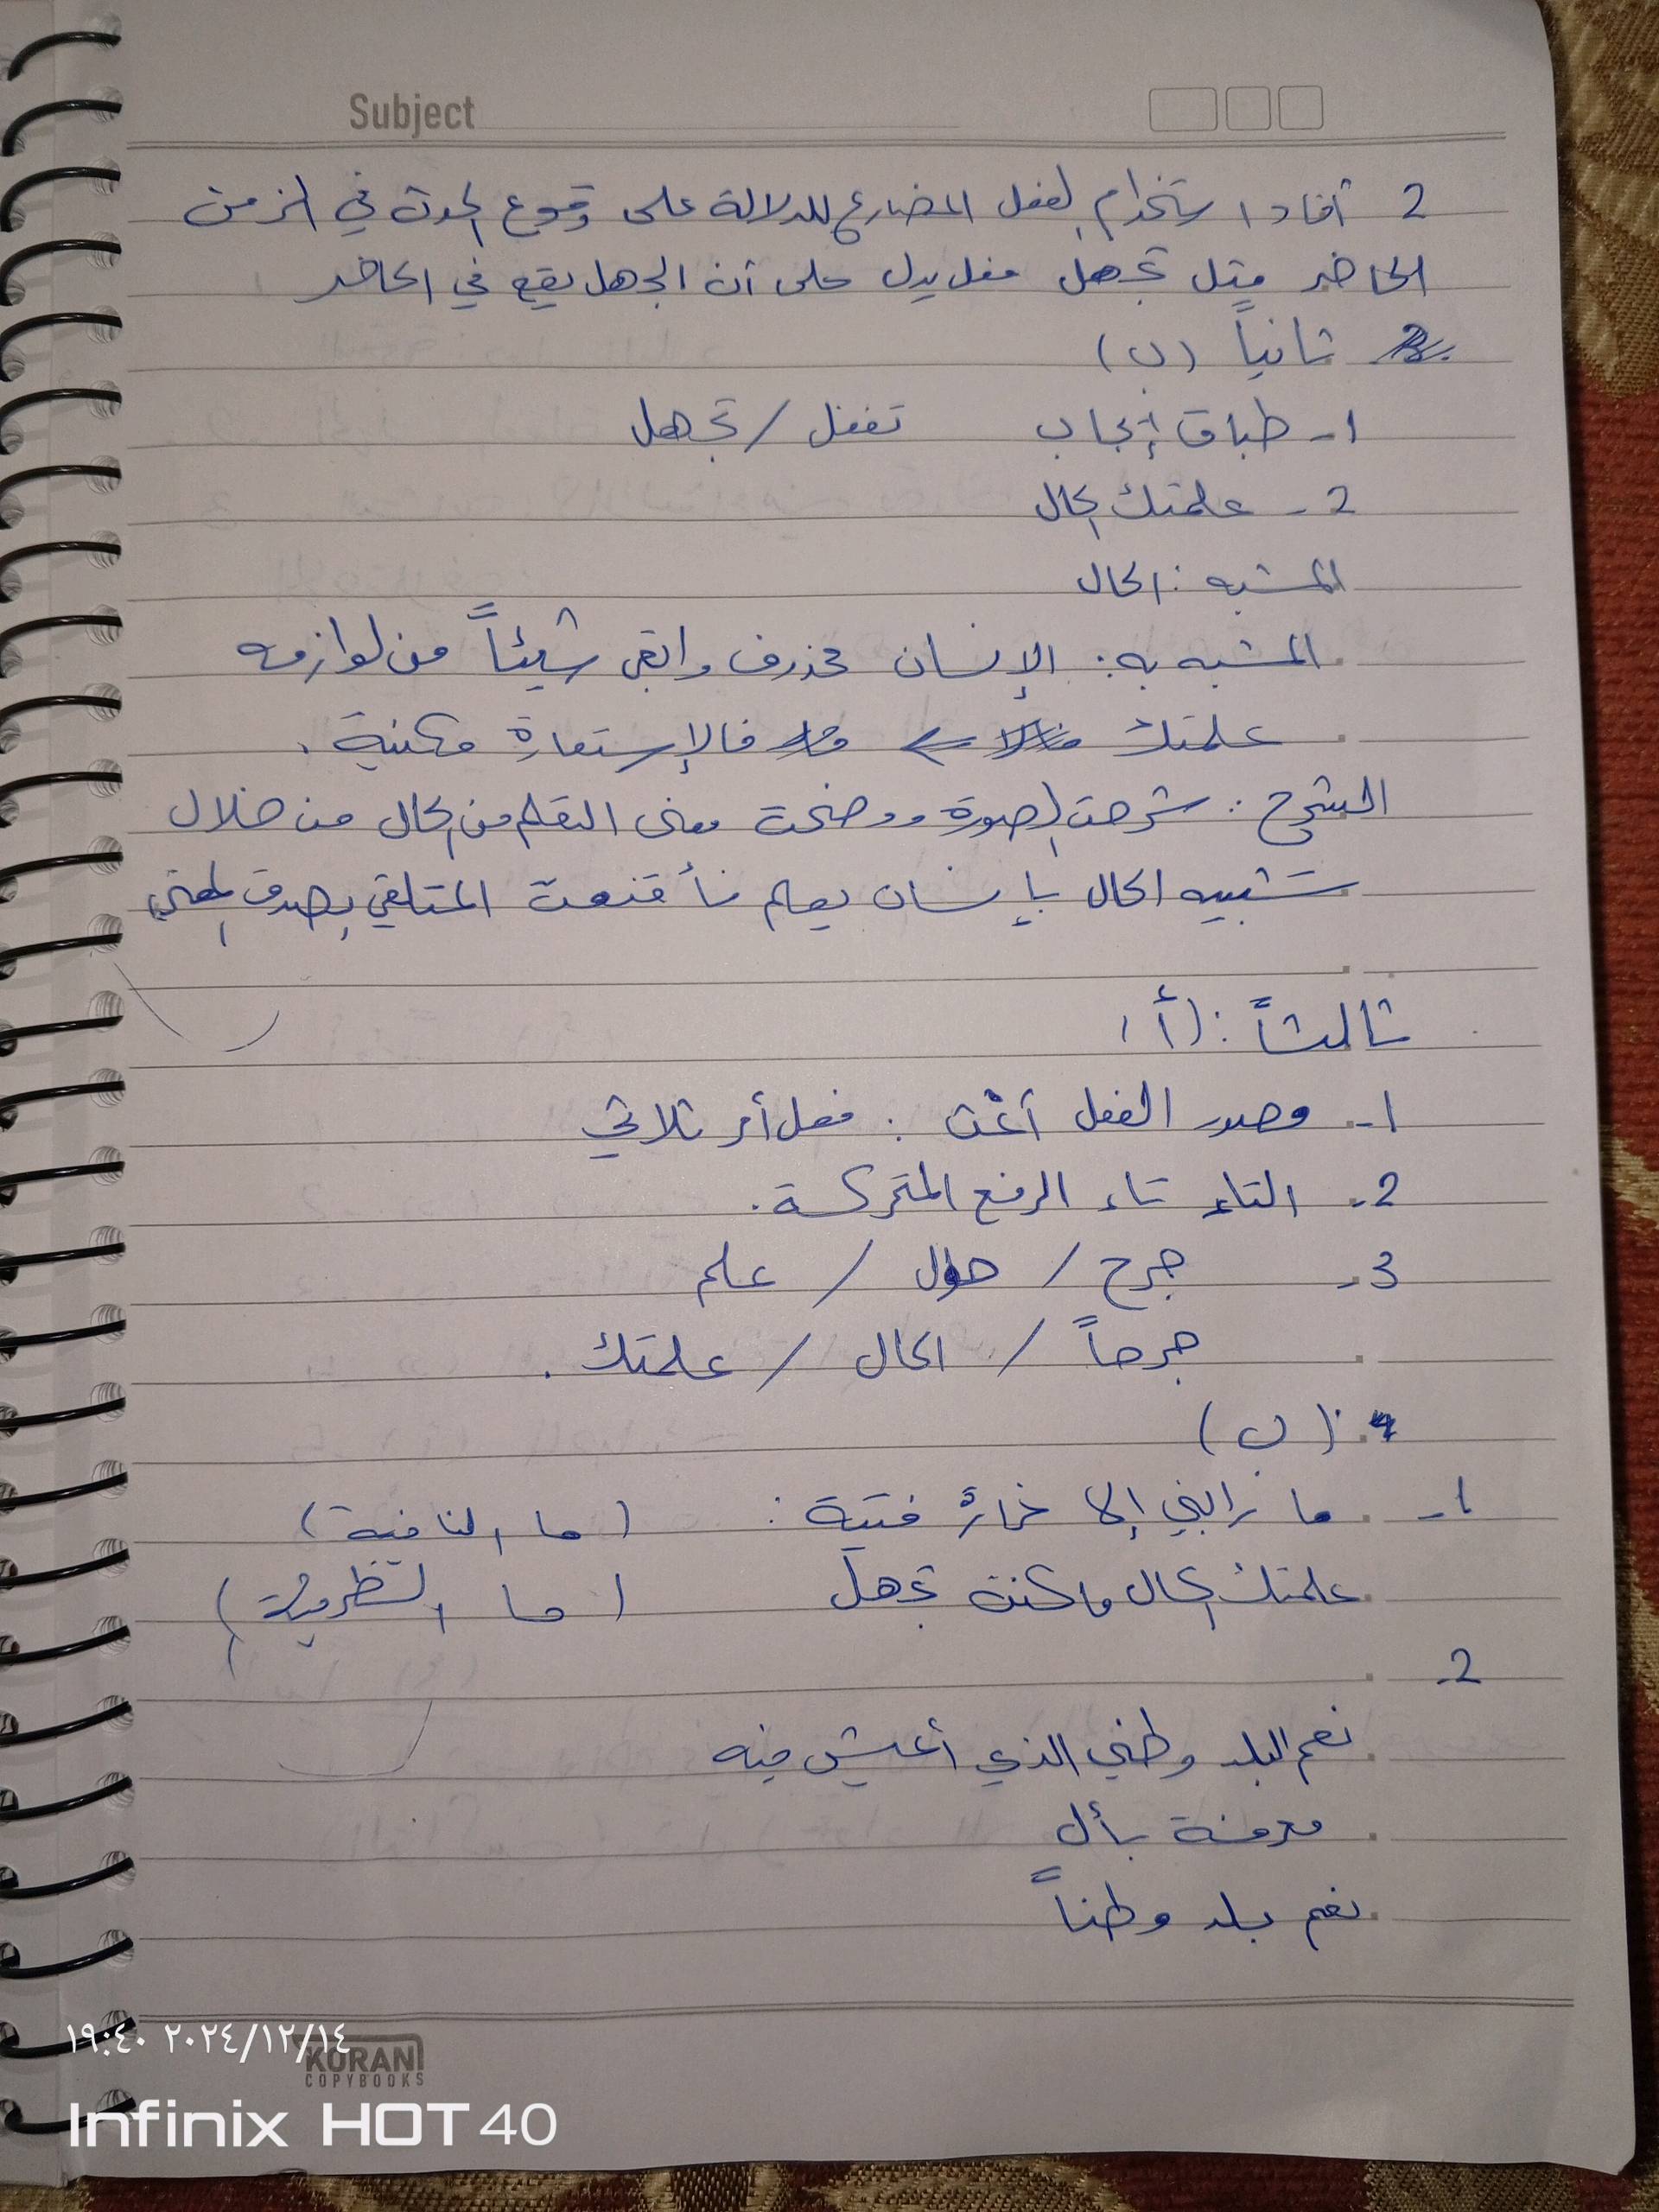 Subject
2 أفاد استخدام الفعل المضارع للدلالة على وقوع الحدث في الزمن
الحاضر مثل تجهل فعل يدل على أن الجهل يقع في الحاضر
ثانياً (ب)
1- طباق إيجاب تعقل / تجهل
2- علمتك الحال
المشبه : الحال
المشبه به : الإنسان محذوف وابقى شيئاً من لوازمه
علمتك فالإستعارة مكنية .
الشرح : شرحت الصورة ووضحت معنى التعلم من الحال من خلال
تشبيه الحال بإنسان يعلم فأقنعت المتلقي بصدق المعنى
ثالثاً : (أ)
1- مصدر الفعل : فعل أمر ثلاثي
2- التاء تاء الرفع المتحركة .
3- جرح / حول / علم
جرحاً / الحال / علمتك .
(ب)
1- ما رابني إلا فتية : (ما النافية)
علمتك الحال ما كنت تجهل (ما الظرفية)
2-
نعم البلد وطني الذي أعيش فيه
معرفة بأل
نعم بلد وطناً
١٩:٤٠ ٢٠٢٤/١٢/١٤
KORAN
COPYBOOKS
Infinix HOT 40